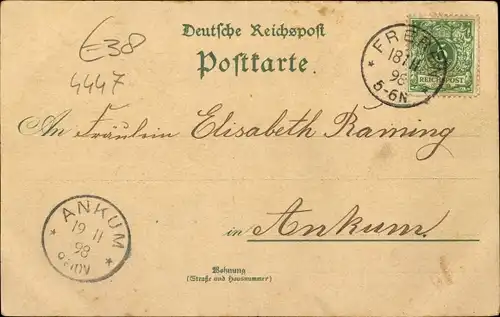 Deutsche Reichspost
Postkarte
E38
4447
FREREN
18 11
98
5-6N
REICHSPOST
An Fräulein Elisabeth Raming
in Ankum.
ANKUM
19 11
98
Wohnung
(Straße und Hausnummer)